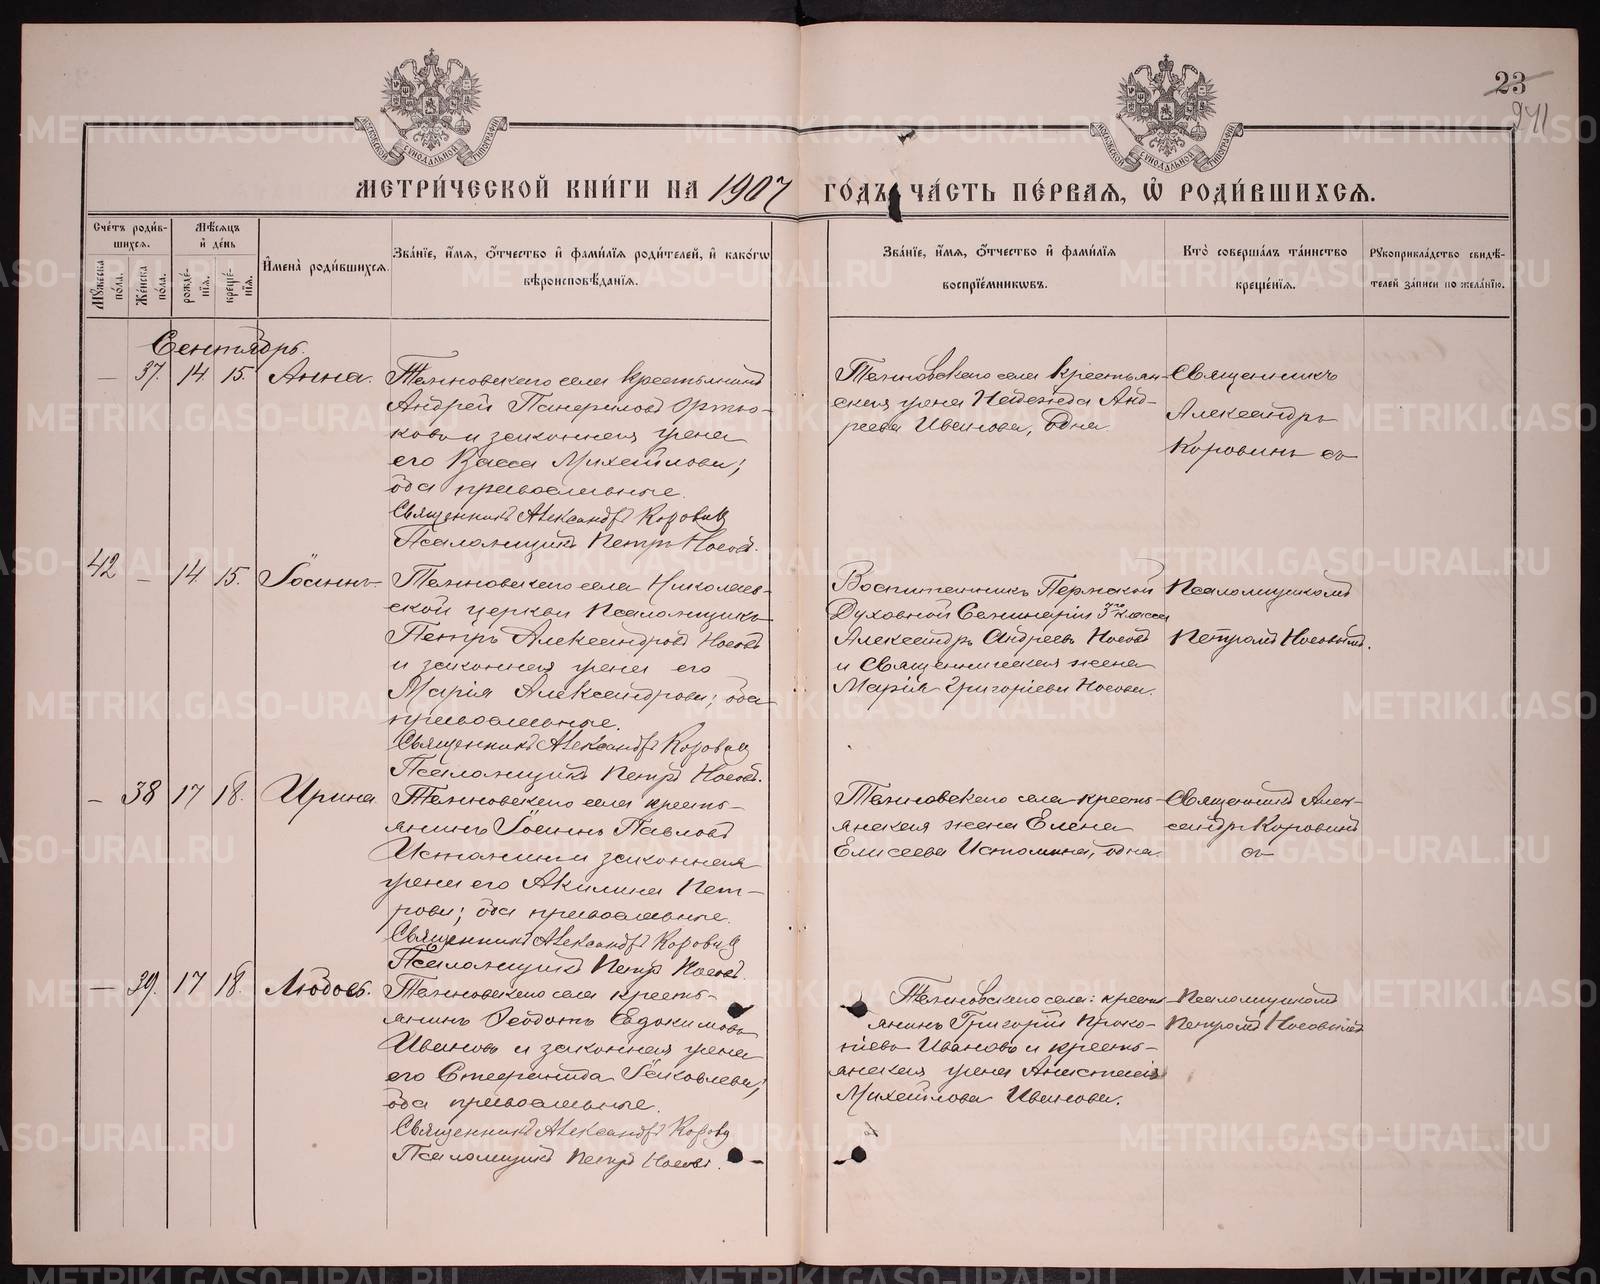 23
241
МЕТРИЧЕСКОЙ КНИГИ НА 1907 ГОДЪ, ЧАСТЬ ПЕРВАЯ, Ѡ РОДИВШИХСЯ.
Счетъ родившихся.
Мужеска пола.
Женска пола.
Мѣсяцъ и день
рожденія.
крещенія.
Имена родившихся.
Званіе, имя, отчество и фамилія родителей, и какогѡ
вѣроисповѣданія.
Званіе, имя, отчество и фамилія
воспріемникѡвъ.
Кто совершалъ таинство
крещенія.
Рукоприкладство свидѣ-
телей записи по желанію.
Сентябрь.
— 37. 14. 15. Анна.
село крестьянинъ
Андрей Панфиловъ Ортю-
ковъ и законная жена
его Васса Михайлова;
оба православные.
Священникъ Александръ Коровинъ
Псаломщикъ Петръ Носовъ.
села крестьян-
ская жена Надежда Анд-
реева Иванова, одна.
Священникъ
Александръ
Коровинъ съ
42 — 14. 15. Іоаннъ
села Николаев-
ской церкви Псаломщикъ
Петръ Александровъ Носовъ
и законная жена его
Марія Александрова; оба
православные.
Священникъ Александръ Коровинъ
Псаломщикъ Петръ Носовъ.
Воспитанникъ Пермской
Духовной Семинаріи 3го класса
Александръ Андреевъ Носовъ
и Священническая жена
Марія Григоріева Носова.
Псаломщикомъ
Петромъ Носовымъ.
— 38 17 18. Ирина.
села кресть-
янинъ Іоаннъ Павловъ
Истоминъ и законная
жена его Акилина Пет-
рова; оба православные.
Священникъ Александръ Коровинъ
Псаломщикъ Петръ Носовъ.
села кресть-
янская жена Елена
Елисеева Истомина, одна.
Священникъ Алек-
сандръ Коровинъ
съ
— 39. 17 18. Любовь.
села кресть-
янинъ Ѳеодотъ Евдокимовъ
Ивановъ и законная жена
его Стефанида Іаковлева;
оба православные.
Священникъ Александръ Коровинъ
Псаломщикъ Петръ Носовъ.
села: кресть-
янинъ Григорій Проко-
піевъ Ивановъ и кресть-
янская жена Анастасія
Михайлова Иванова.
Псаломщикомъ
Петромъ Носовымъ
METRIKI.GASO-URAL.RU